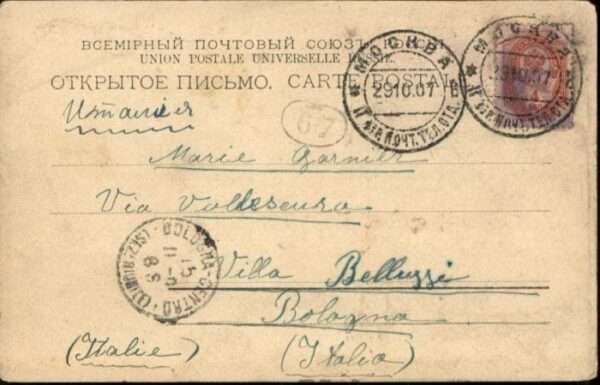 ВСЕМІРНЫЙ ПОЧТОВЫЙ СОЮЗЪ.
UNION POSTALE UNIVERSELLE
ОТКРЫТОЕ ПИСЬМО. CARTE POSTALE
МОСКВА
29 10.07
МОСКВА
29 10.07
67
Италія
Marie Garnier
Via Valdesura
BOLOGNA-CENTRO
Villa Belluzzi
Bologna
(Italie)
(Italia)